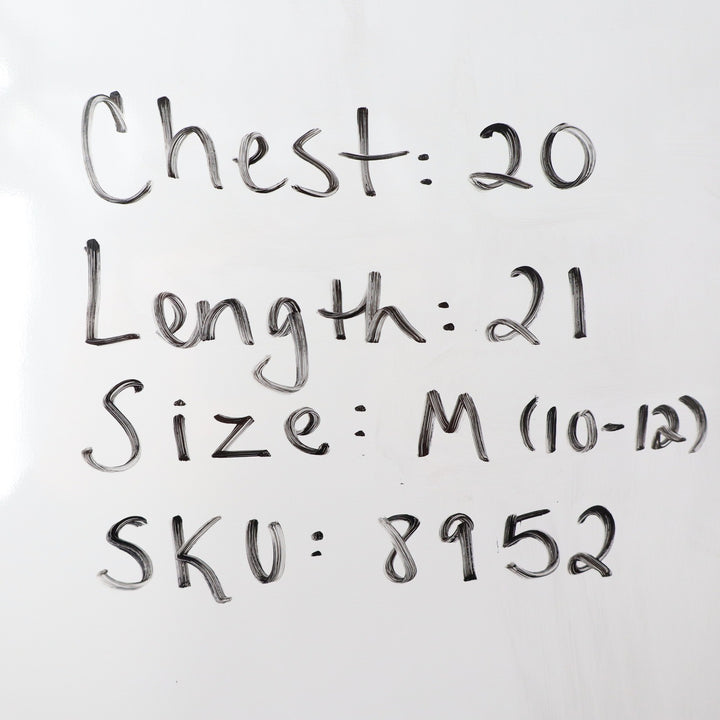 Chest: 20
Length: 21
Size: M (10-12)
SKU: 8952